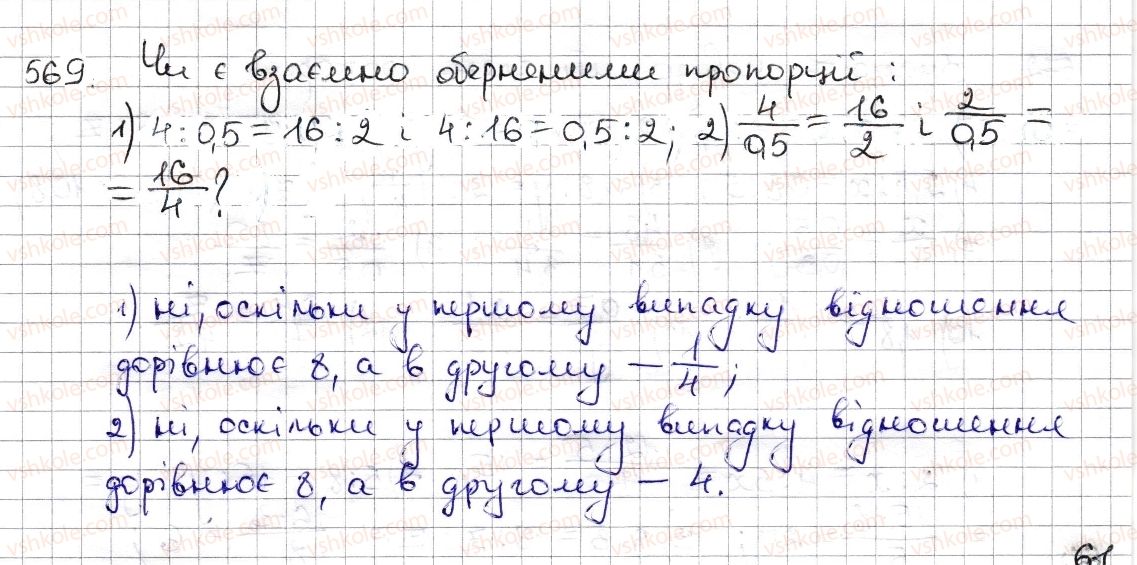 569. Чи є взаємно оберненими пропорції:
1) 4 : 0,5 = 16 : 2 і 4 : 16 = 0,5 : 2; 2) 4/0,5 = 16/2 і 2/0,5 =
= 16/4 ?
1) ні, оскільки у першому випадку відношення
дорівнює 8, а в другому – 1/4;
2) ні, оскільки у першому випадку відношення
дорівнює 8, а в другому – 4.
61